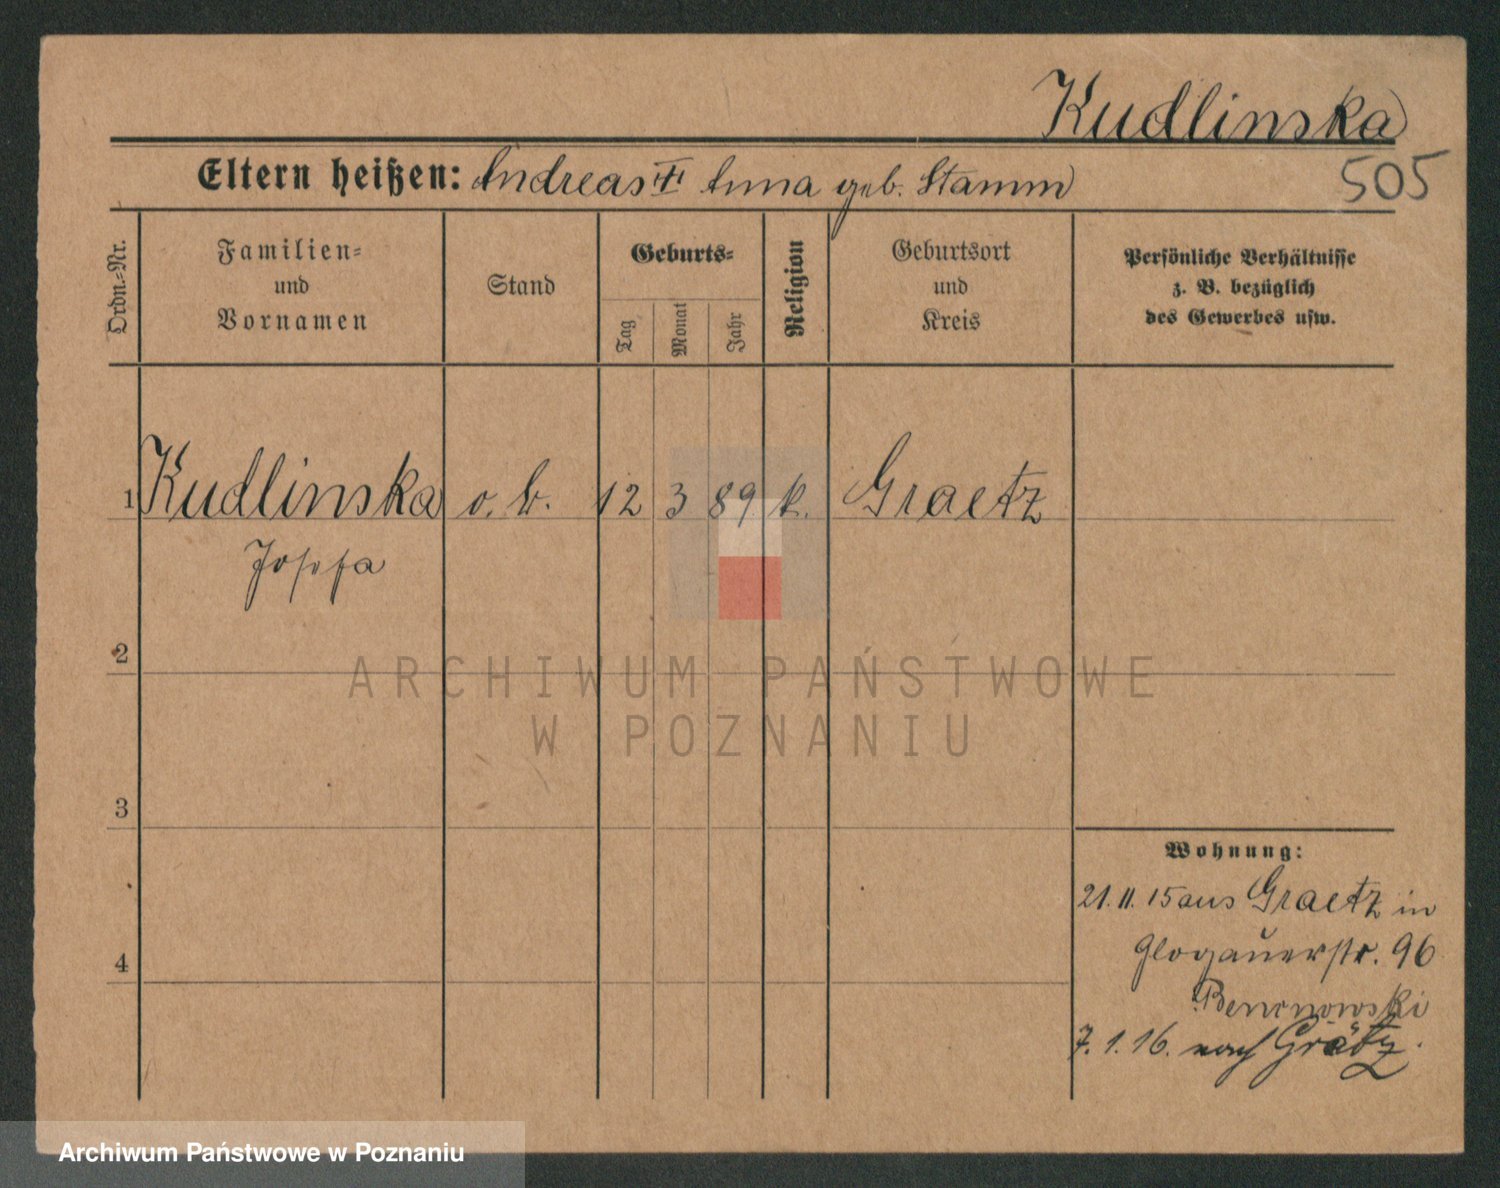 Kudlinska
505
Eltern heißen: Andreas † Anna geb. Stamm
Ordn.-Nr.
Familien-
und
Vornamen
Stand
Geburts-
Tag
Monat
Jahr
Religion
Geburtsort
und
Kreis
Persönliche Verhältnisse
z. B. bezüglich
des Gewerbes usw.
1 Kudlinska o. b. 12 3 89 k. Graetz
Josefa
2
3
4
Wohnung:
21. 11. 15 aus Graetz in
Glogauerstr. 96
7. 1. 16. nach Grätz.
ARCHIWUM PAŃSTWOWE
W POZNANIU
Archiwum Państwowe w Poznaniu